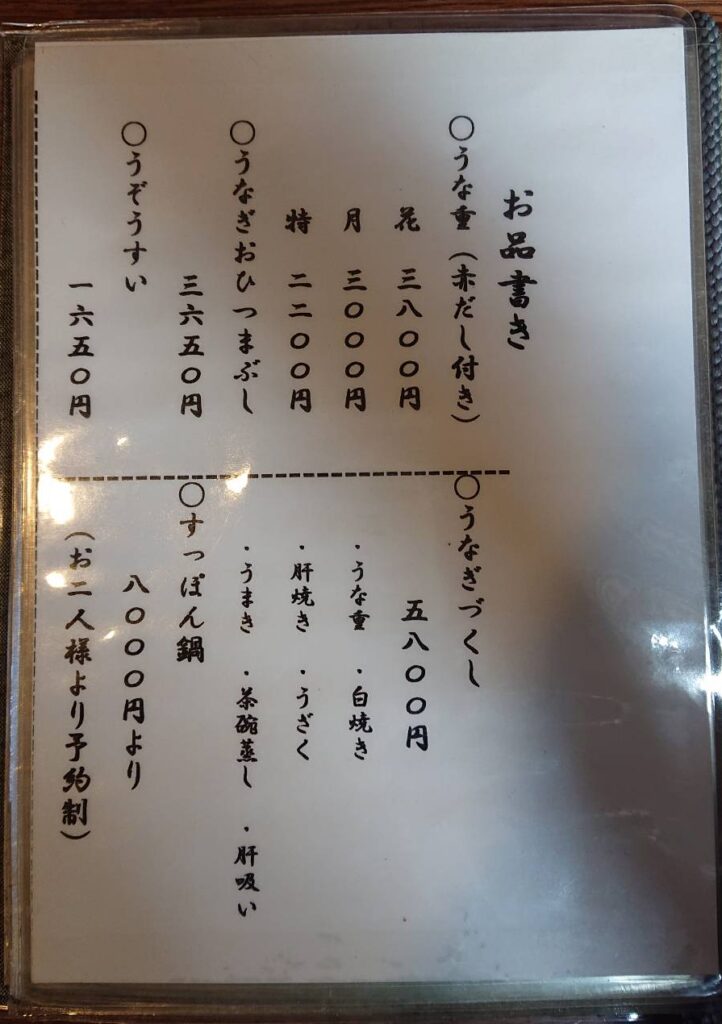 お品書き
○うな重（赤だし付き）
花 三八〇〇円
月 三〇〇〇円
特 二二〇〇円
○うなぎおひつまぶし
三六五〇円
○うぞうすい
一六五〇円
○うなぎづくし
五八〇〇円
・うな重 ・白焼き
・肝焼き ・うざく
・うまき ・茶碗蒸し ・肝吸い
○すっぽん鍋
八〇〇〇円より
（お二人様より予約制）